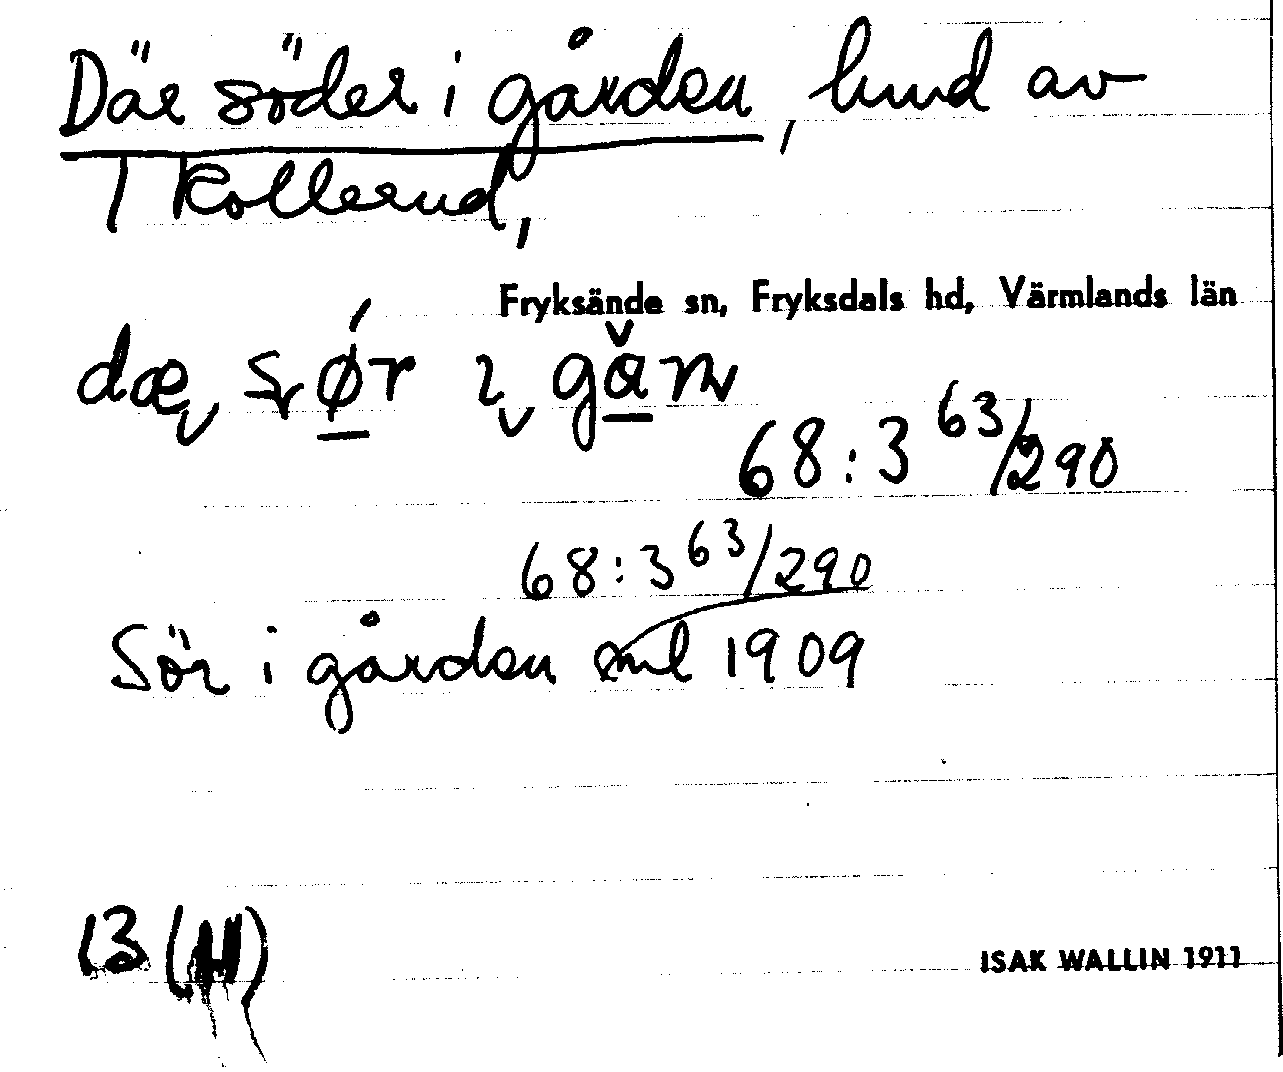 Där söder i gården, lund av
1 Kollerud,
Fryksände sn, Fryksdals hd, Värmlands län
68:3 63/290
68:3 63/290
Sör i gården enl 1909
13 (11)
ISAK WALLIN 1911